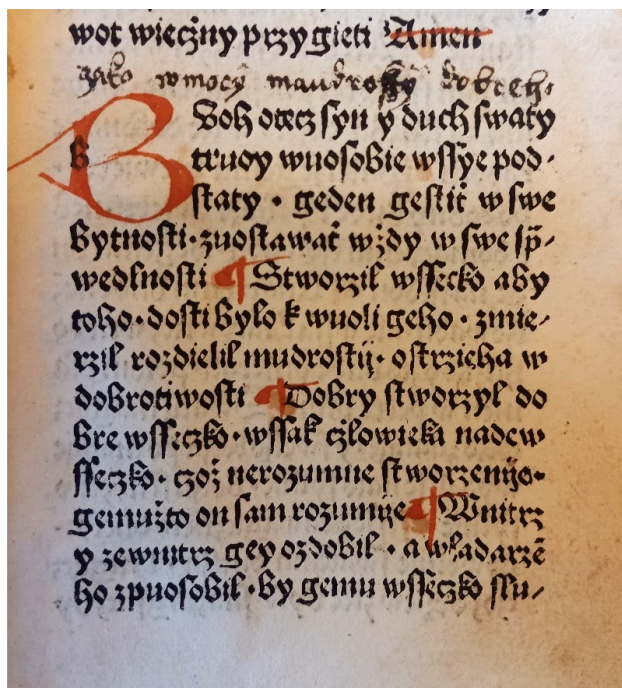 wot wieczny przygieti Amen
yako w mocy maudrosty dobreh.
Boh otecz syn y duch swaty
truoy wuosobie wssye pod-
staty · geden gestit w swe
bytnosti·zuostawat wżdy w swe sp̄-
wedlnosti ¶ Stworzil wssecko aby
toho·dosti bylo k wuoli geho·zmie-
rzil rozdielil mudrostij·ostrzieha w
dobrotiwosti ¶ Dobry stworzyl do
bre wsseczko·wssak czlowieka nadew
sseczko·czoż nerozumne stworzenijo·
gemużto on sam rozumije ¶ Wnitrz
y zewnitrz gey ozdobil·a władarzē
ho zpuosobil·by gemu wsseczko slu-